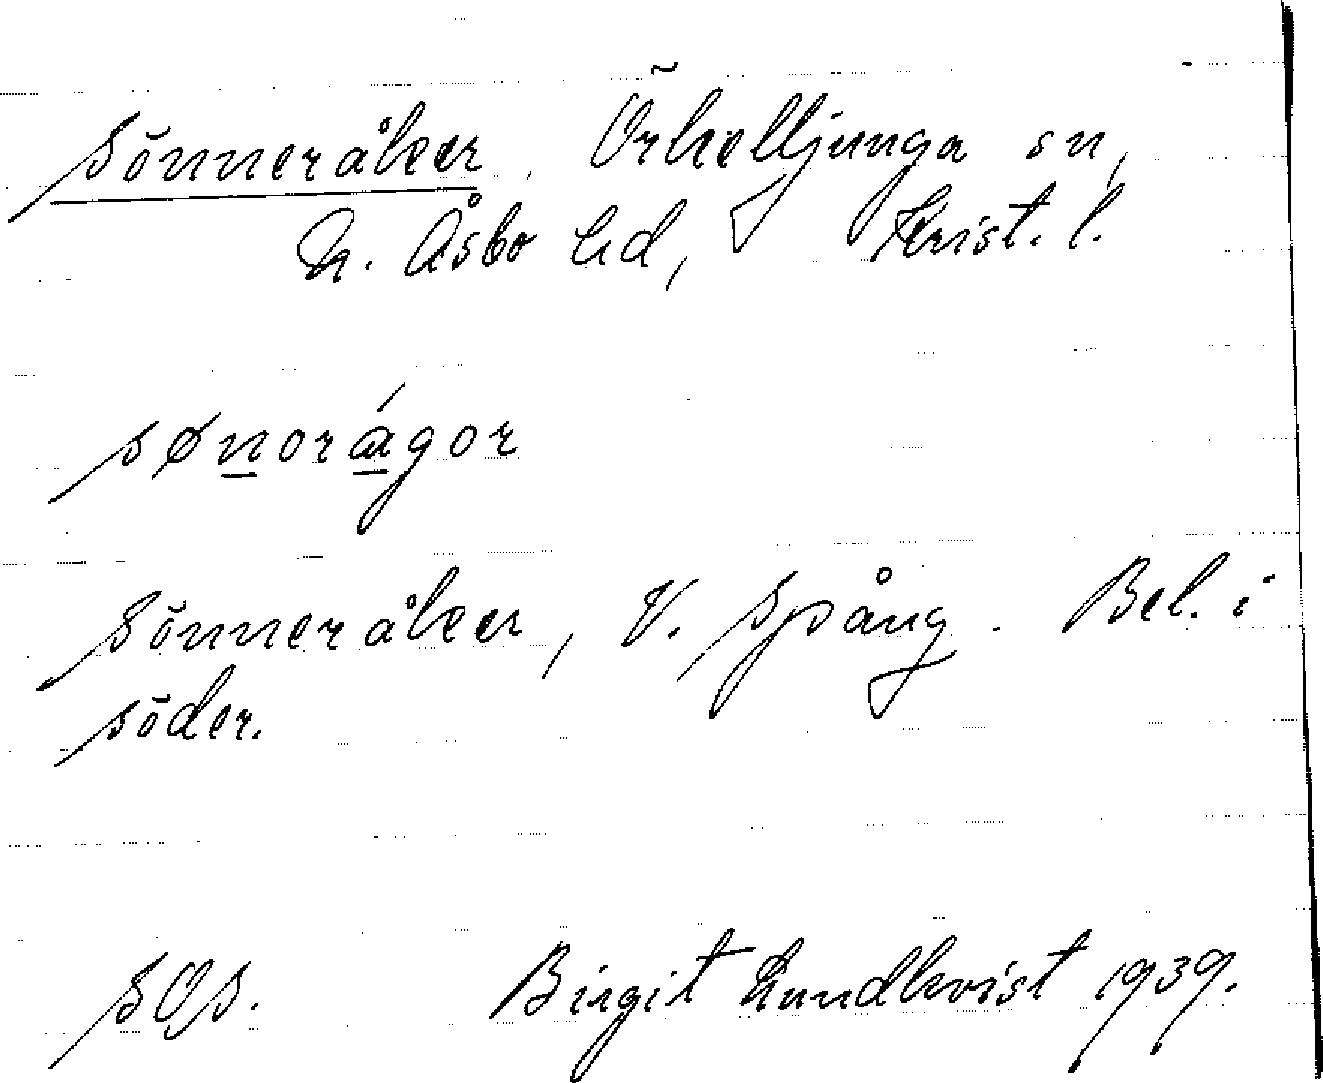 Sönneråker, Örkelljunga sn,
N. Åsbo hd, Krist. l.
sønorágor
Sönneråker, V. Spång. Bel. i
söder.
SOS. Birgit Lundkvist 1939.